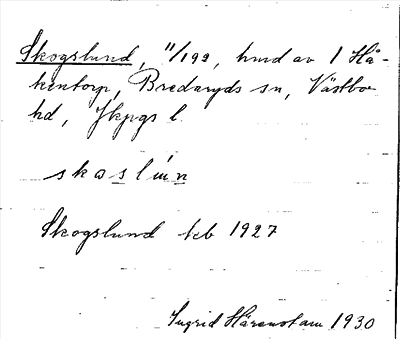 Skogslund, 11/199, hmd av 1 Hå-
kentorp, Bredaryds sn, Västbo
hd, Jkpgs l.
skɷslún
Skogslund keb 1927
Ingrid Härenstam 1930